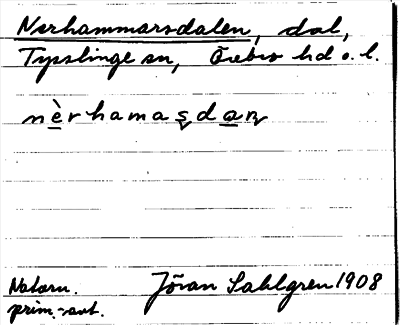 Nerhammarsdalen, dal,
Tysslinge sn, Örebro hd o. l.
nèrhamaʂdaɳ
Natorn. Jöran Sahlgren 1908
prim.-ant.